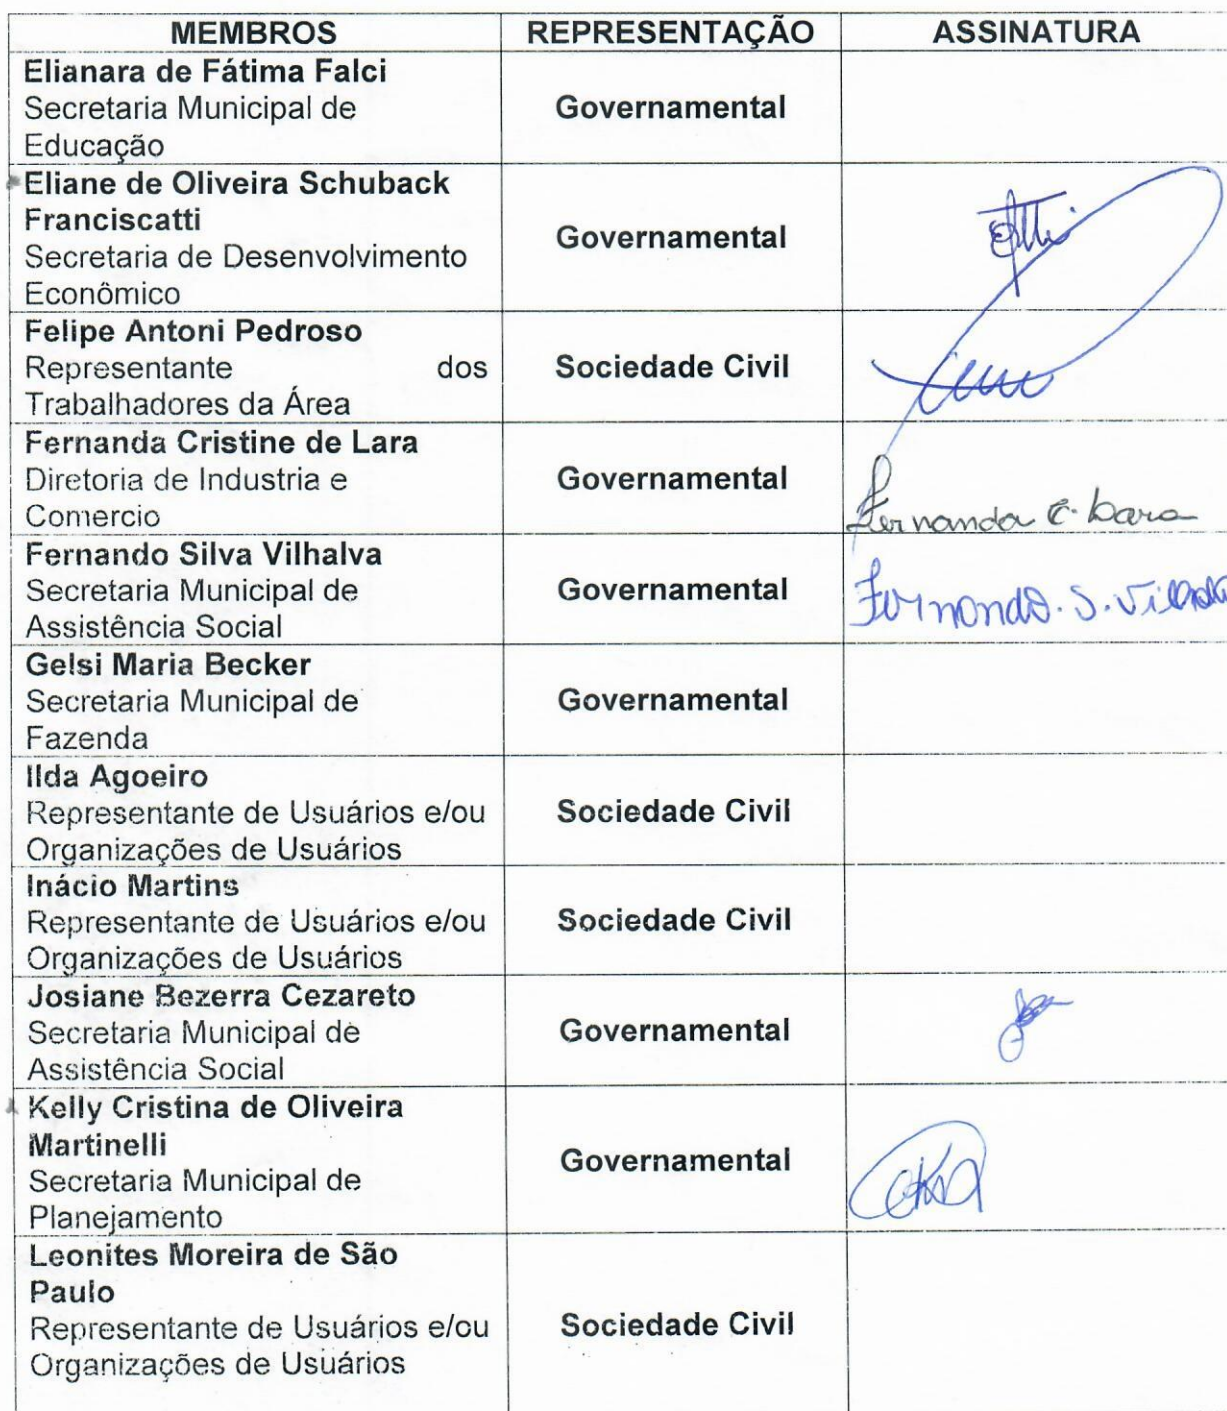 MEMBROS REPRESENTAÇÃO ASSINATURA
Elianara de Fátima Falci
Secretaria Municipal de
Educação
Governamental
Eliane de Oliveira Schuback
Franciscatti
Secretaria de Desenvolvimento
Econômico
Governamental
Felipe Antoni Pedroso
Representante dos
Trabalhadores da Área
Sociedade Civil
Fernanda Cristine de Lara
Diretoria de Industria e
Comercio
Governamental
Fernanda C. Lara
Fernando Silva Vilhalva
Secretaria Municipal de
Assistência Social
Governamental
Fernando. S.
Gelsi Maria Becker
Secretaria Municipal de
Fazenda
Governamental
Ilda Agoeiro
Representante de Usuários e/ou
Organizações de Usuários
Sociedade Civil
Inácio Martins
Representante de Usuários e/ou
Organizações de Usuários
Sociedade Civil
Josiane Bezerra Cezareto
Secretaria Municipal de
Assistência Social
Governamental
Kelly Cristina de Oliveira
Martinelli
Secretaria Municipal de
Planejamento
Governamental
Leonites Moreira de São
Paulo
Representante de Usuários e/ou
Organizações de Usuários
Sociedade Civil